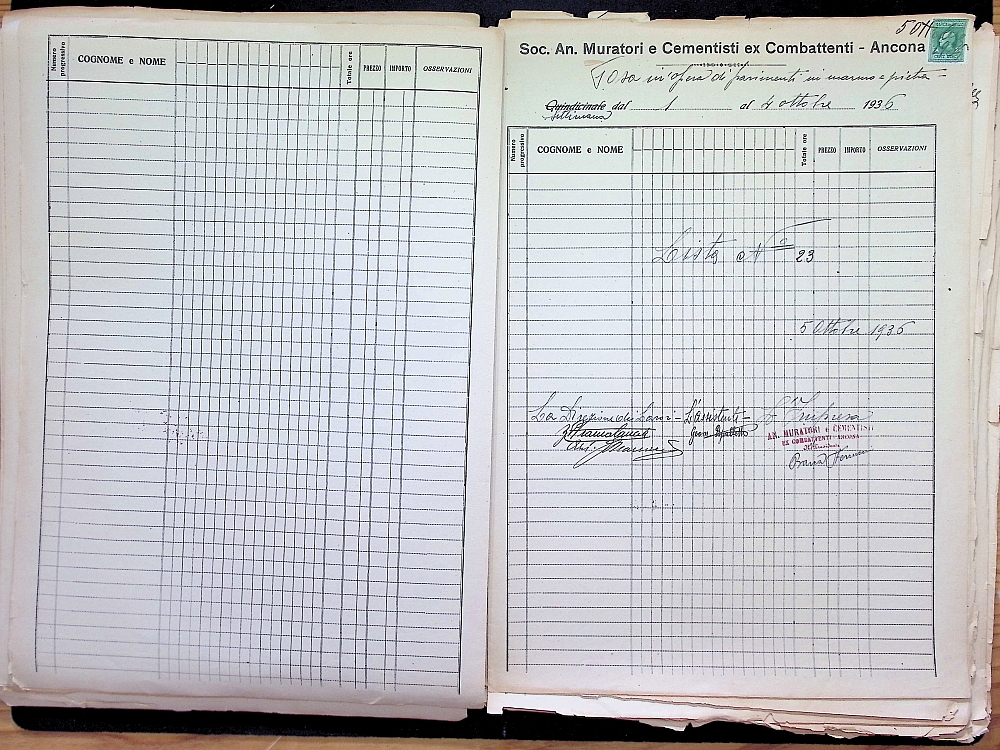 Numero progressivo COGNOME e NOME Totale ore PREZZO IMPORTO OSSERVAZIONI
Soc. An. Muratori e Cementisti ex Combattenti - Ancona
Posa in opera di pavimenti in marmo e pietra
Quindicinale dal 1 al 4 ottobre 1936
Settimana
Numero progressivo COGNOME e NOME Totale ore PREZZO IMPORTO OSSERVAZIONI
Lista N° 23
5 Ottobre 1936
La Direzione dei Lavori - L'assistente - L'Impresa
AN. MURATORI e CEMENTISTI
EX COMBATTENTI - ANCONA